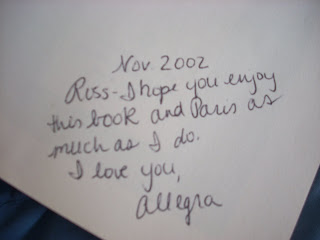 Nov. 2002
Russ - I hope you enjoy
this book and Paris as
much as I do.
I love you,
Allegra